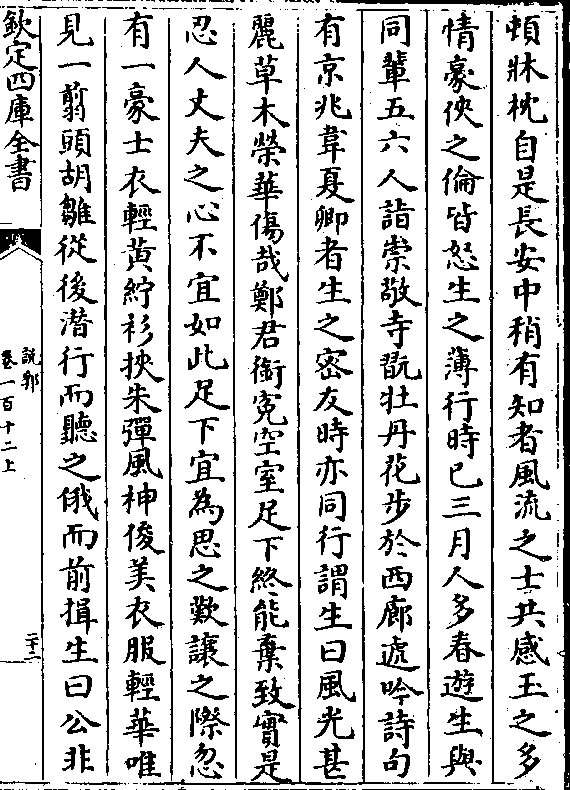 頓牀枕自是長安中稍有知者風流之士共感玉之多
情豪俠之倫皆怒生之薄行時已三月人多春遊生與
同輩五六人詣崇敬寺翫牡丹花步於西廊遞吟詩句
有京兆韋夏卿者生之密友時亦同行謂生曰風光甚
麗草木榮華傷哉鄭君銜冤空室足下終能棄致實是
忍人丈夫之心不宜如此足下宜為思之歎讓之際忽
有一豪士衣輕黄紵衫挾朱彈風神俊美衣服輕華唯
見一翦頭胡雛從後潛行而聽之俄而前揖生曰公非
欽定四庫全書
說郛
卷一百十二上
二十二